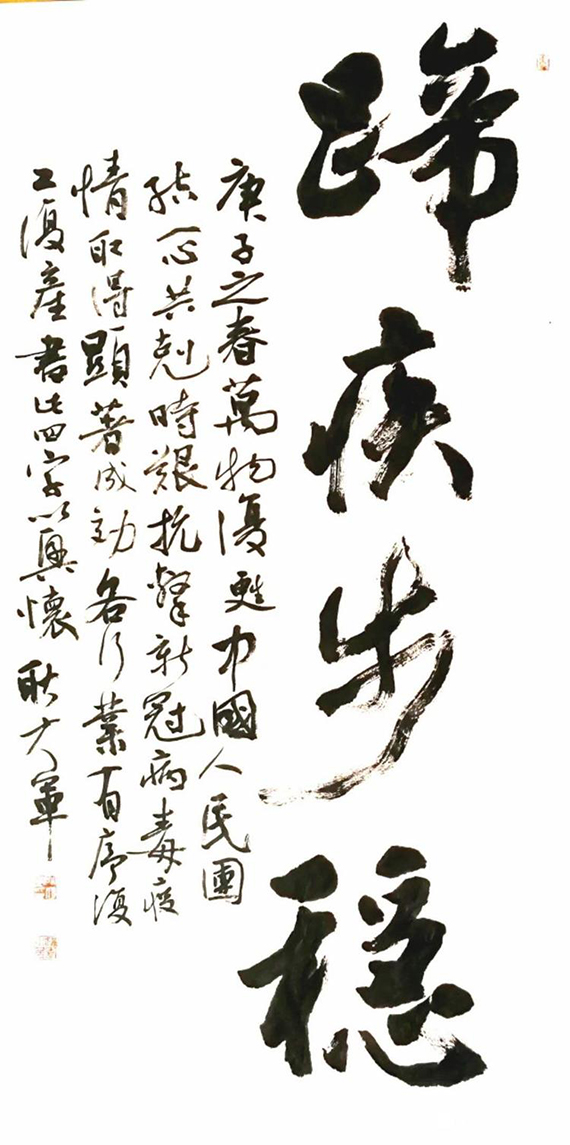 蹄疾步穩
庚子之春萬物復甦中國人民團
結一心共剋時艱抗擊新冠病毒疫
情取得顯著成効各行業有序復
工復產書此四字以興懷 耿大軍